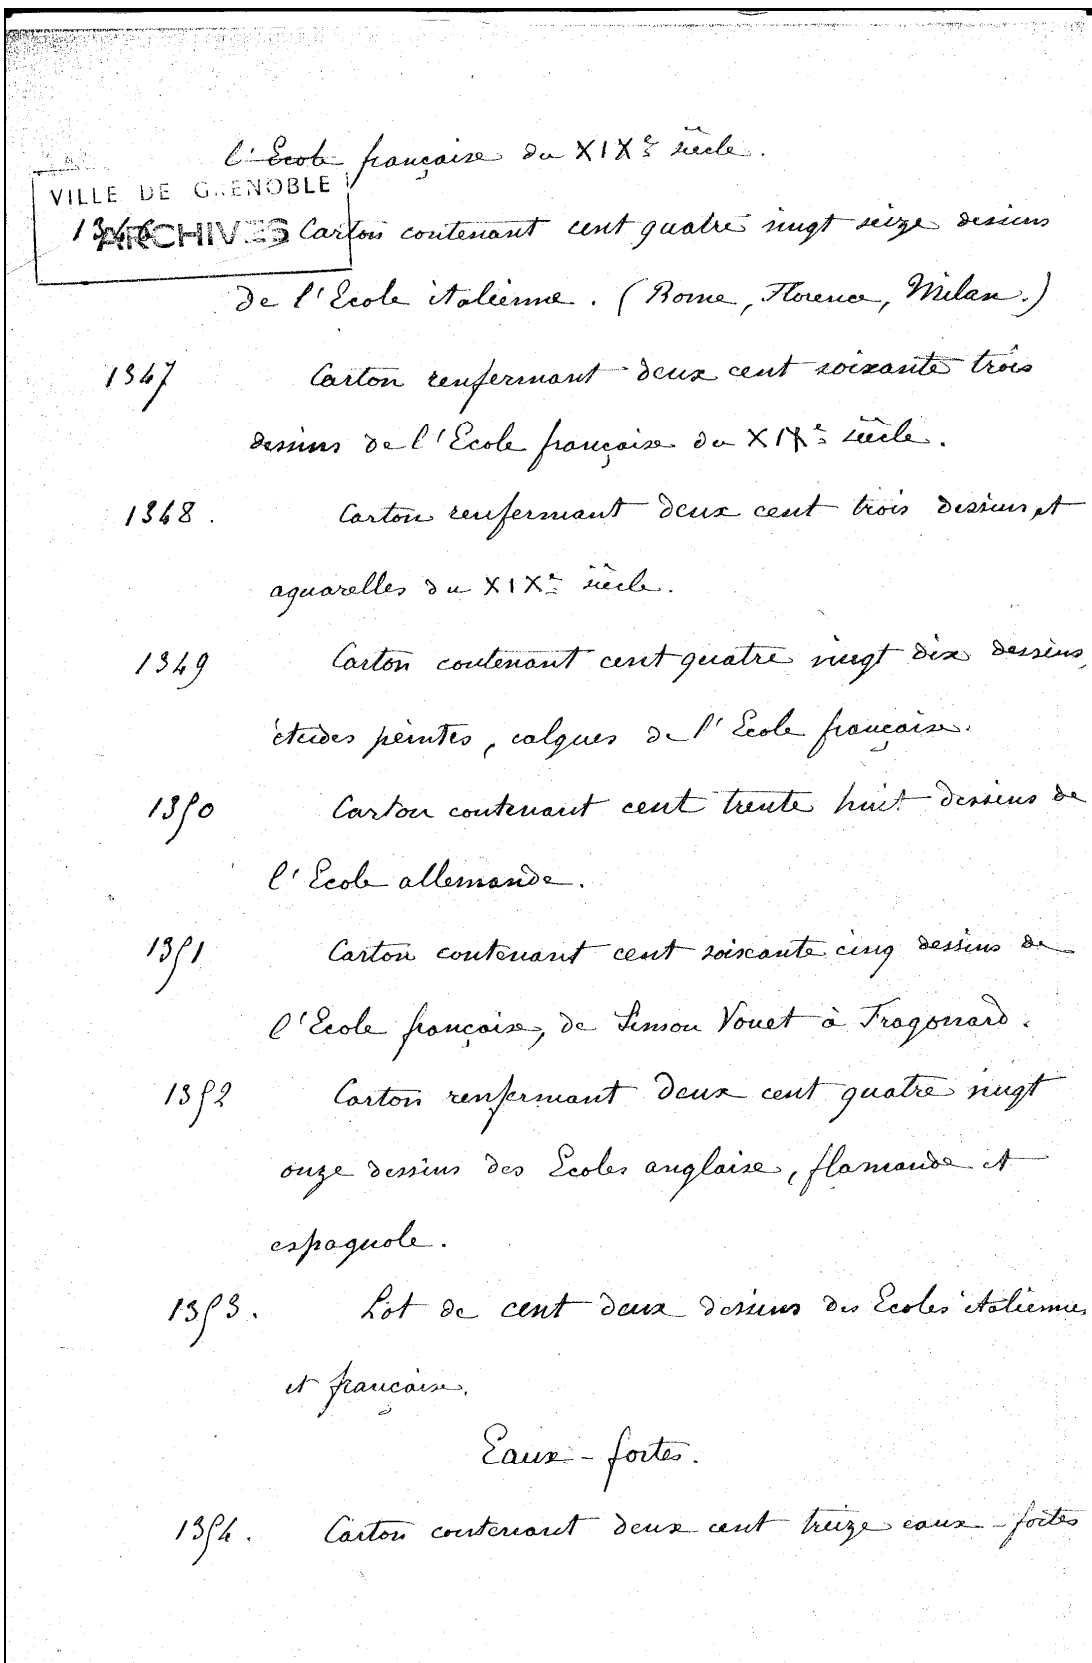 l'Ecole française du XIXe siècle.
VILLE DE GRENOBLE
ARCHIVES
1346 Carton contenant cent quatre vingt seize dessins
de l'Ecole italienne. (Rome, Florence, Milan.)
1347 Carton renfermant deux cent soixante trois
dessins de l'Ecole française du XIXe siècle.
1348. Carton renfermant deux cent trois dessins et
aquarelles du XIXe siècle.
1349 Carton contenant cent quatre vingt dix dessins,
études peintes, calques de l'Ecole française.
1350 Carton contenant cent trente huit dessins de
l'Ecole allemande.
1351 Carton contenant cent soixante cinq dessins de
l'Ecole française, de Simon Vouet à Fragonard.
1352 Carton renfermant deux cent quatre vingt
onze dessins des Ecoles anglaise, flamande et
espagnole.
1353. Lot de cent deux dessins des Ecoles italienne
et française.
Eaux-fortes.
1354. Carton contenant deux cent treize eaux-fortes